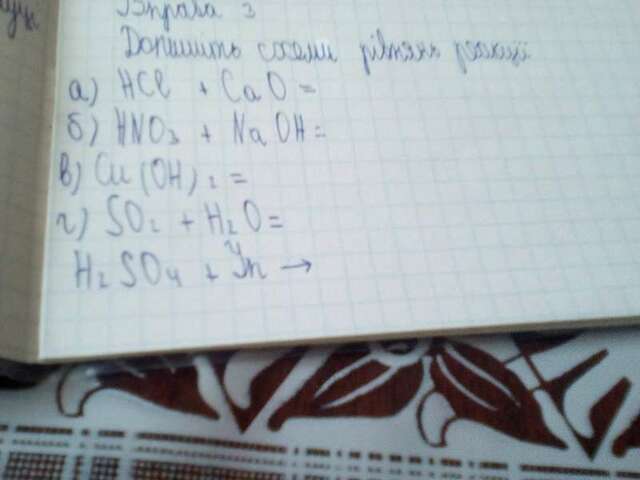 Вправа 3
Допишіть схеми рівнянь реакції
а) HCl + CaO =
б) HNO3 + NaOH =
в) Cu(OH)2 =
г) SO2 + H2O =
H2SO4 + Zn →